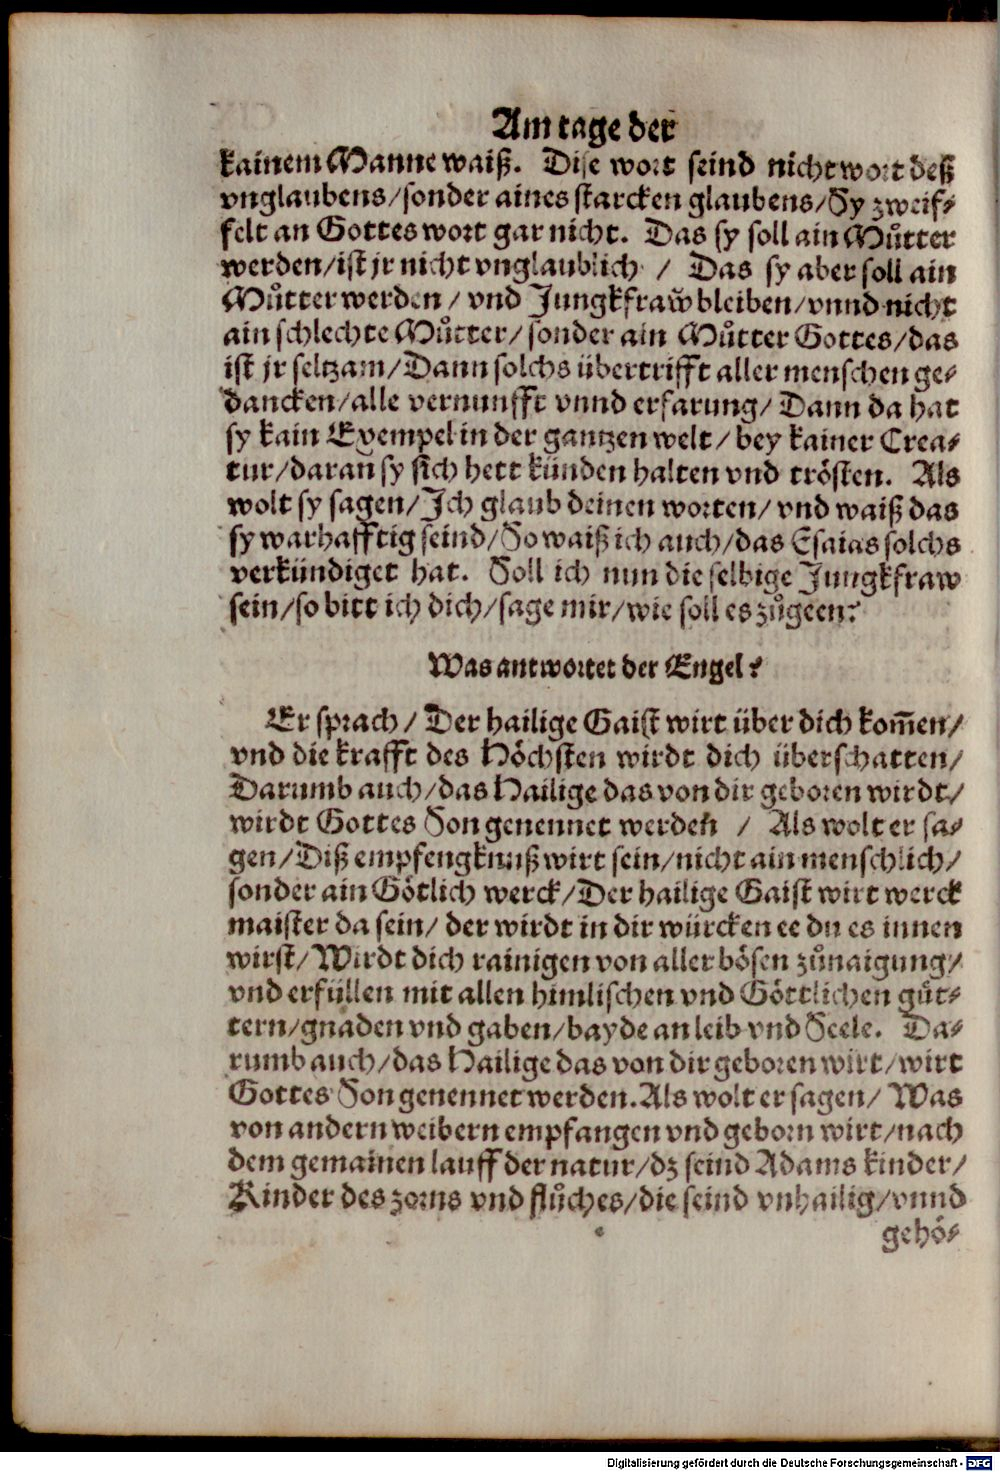 Am tage der
kainem Manne waiß. Dise wort seind nicht wort deß
vnglaubens/sonder aines starcken glaubens/Sy zweif⸗
felt an Gottes wort gar nicht. Das sy soll ain Můtter
werden/ist jr nicht vnglaublich / Das sy aber soll ain
Můtter werden / vnd Jungkfraw̃ bleiben/vnnd nicht
ain schlechte Můtter/ sonder ain Můtter Gottes/das
ist jr seltzam/Dann solchs übertrifft aller menschen ge⸗
dancken/alle vernunfft vnnd erfarung/ Dann da hat
sy kain Exempel in der gantzen welt/ bey kainer Crea⸗
tur/daran sy sich hett künden halten vnd trösten. Als
wolt sy sagen/Ich glaub deinen worten/ vnd waiß das
sy warhafftig seind/So waiß ich auch/das Esaias solchs
verkündiget hat. Soll ich nun die selbige Jungkfraw
sein/so bitt ich dich/sage mir/wie soll es zůgeen?
Was antwortet der Engel?
Er sprach/ Der hailige Gaist wirt über dich kom̃en/
vnd die krafft des Höchsten wirdt dich überschatten/
Darumb auch/das Hailige das von dir geboren wirdt/
wirdt Gottes Son genennet werden / Als wolt er sa⸗
gen/Diß empfengknuß wirt sein/nicht ain menschlich/
sonder ain Götlich werck/Der hailige Gaist wirt werck
maister da sein/ der wirdt in dir würcken ee du es innen
wirst/Wirdt dich rainigen von aller bösen zůnaigung/
vnd erfüllen mit allen himlischen vnd Göttlichen güt⸗
tern/gnaden vnd gaben/bayde an leib vnd Seele. Da⸗
rumb auch/das Hailige das von dir geboren wirt/wirt
Gottes Son genennet werden. Als wolt er sagen/ Was
von andern weibern empfangen vnd geborn wirt/nach
dem gemainen lauff der natur/dz seind Adams kinder/
Kinder des zorns vnd flůches/die seind vnhailig/vnnd
gehö⸗
Digitalisierung gefördert durch die Deutsche Forschungsgemeinschaft - DFG